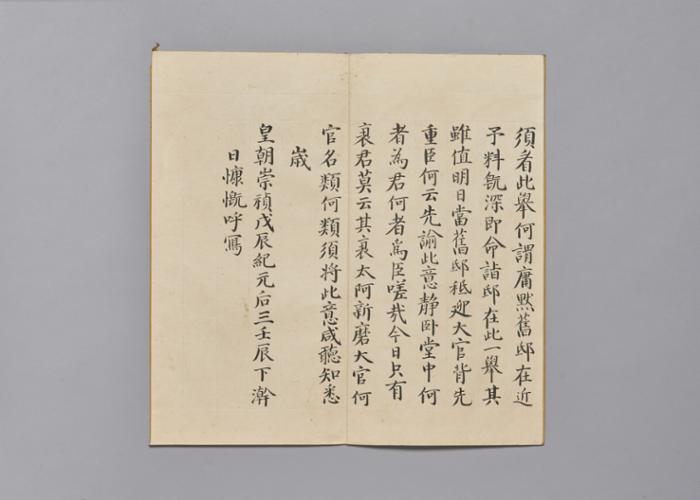 須看此擧何謂庸黙舊邸在近
予料旣深即命詣邸在此一擧其
雖值明日當舊邸祗迎大官背先
重臣何云先諭此意静卧堂中何
者為君何者爲臣嗟哉今日只有
裒君莫云其裒太阿新磨大官何
官名類何類須將此意咸聽知悉
歲
皇朝崇禎戊辰紀元后三壬辰下澣
日慷慨呼寫